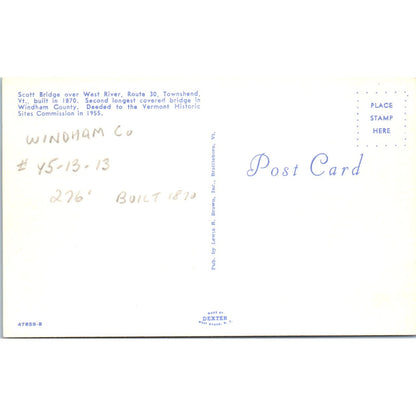 Scott Bridge over West River, Route 30, Townshend,
Vt., built in 1870. Second longest covered bridge in
Windham County. Deeded to the Vermont Historic
Sites Commission in 1955.
PLACE
STAMP
HERE
WINDHAM Co
# 45-13-13
276' BUILT 1870
Post Card
Pub. by Lewis R. Brown, Inc., Brattleboro, Vt.
MADE BY
DEXTER
WEST NYACK, N. Y.
47859-B